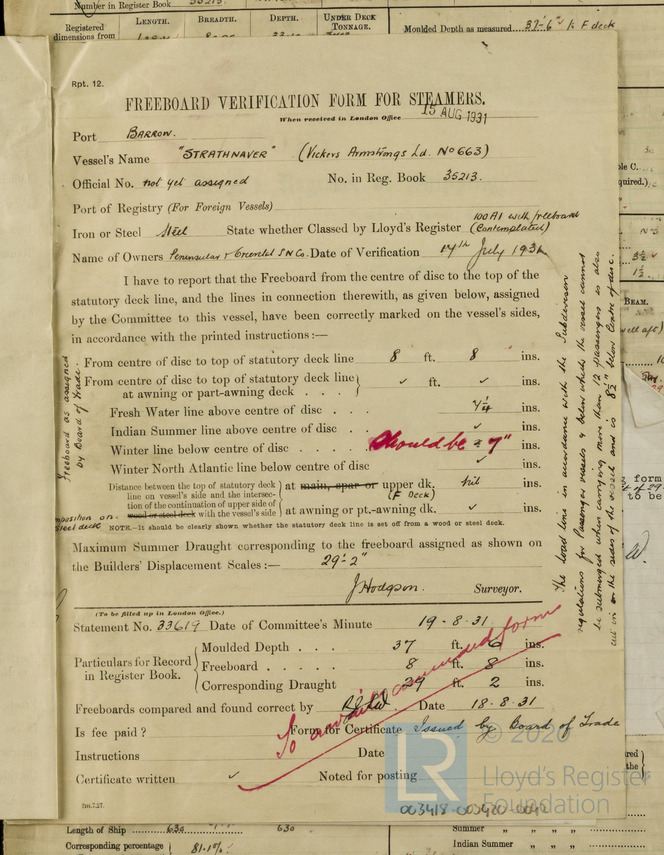 Number in Register Book 35213.
Registered dimensions from
LENGTH. BREADTH. DEPTH. UNDER DECK TONNAGE.
Moulded Depth as measured 37'-6" to F deck
Rpt. 12.
FREEBOARD VERIFICATION FORM FOR STEAMERS.
When received in London Office 15 AUG 1931
Port BARROW.
Vessel's Name "STRATHNAVER" (Vickers Armstrongs Ld. No 663)
Official No. not yet assigned No. in Reg. Book 35213.
Port of Registry (For Foreign Vessels)
Iron or Steel Steel State whether Classed by Lloyd's Register 100 A1 with freeboard (Contemplated)
Name of Owners Peninsular & Oriental S N Co. Date of Verification 14th July 1931
I have to report that the Freeboard from the centre of disc to the top of the
statutory deck line, and the lines in connection therewith, as given below, assigned
by the Committee to this vessel, have been correctly marked on the vessel's sides,
in accordance with the printed instructions:—
From centre of disc to top of statutory deck line 8 ft. 8 ins.
From centre of disc to top of statutory deck line at awning or part-awning deck . . . ✓ ft. ✓ ins.
Fresh Water line above centre of disc . . . 7¼ ins.
Indian Summer line above centre of disc . . ✓ ins.
Winter line below centre of disc . . . should be 7" ins.
Winter North Atlantic line below centre of disc ✓ ins.
Distance between the top of statutory deck
line on vessel's side and the intersec-
tion of the continuation of upper side of
wood or steel deck with the vessel's side
at main, spar or upper dk. (F Deck) nil ins.
at awning or pt.-awning dk. ✓ ins.
NOTE.—It should be clearly shown whether the statutory deck line is set off from a wood or steel deck.
Freeboard as assigned
by Board of Trade.
steel deck
The load line in accordance with the Subdivision
regulations for Passenger vessels & below which the vessel cannot
be submerged when carrying more than 12 passengers is also
cut in on the sides of the vessel and is 8½" below Centre of disc.
Maximum Summer Draught corresponding to the freeboard assigned as shown on
the Builders' Displacement Scales:— 29'-2"
J Hodgson. Surveyor.
(To be filled up in London Office.)
Statement No. 33619 Date of Committee's Minute 19-8-31
Particulars for Record in Register Book.
Moulded Depth . . . 37 ft. 6 ins.
Freeboard . . . . . 8 ft. 8 ins.
Corresponding Draught 29 ft. 2 ins.
Freeboards compared and found correct by Date 18-8-31
Is fee paid ? Form for Certificate Issued by Board of Trade
Instructions Date
Certificate written ✓ Noted for posting
amended form
2m.7.27.
003418-003420-0042
LR © 2020
Lloyd's Register
Foundation
Length of Ship 630 630
Corresponding percentage 81.1%
Summer " "
Indian Summer " "
BEAM.